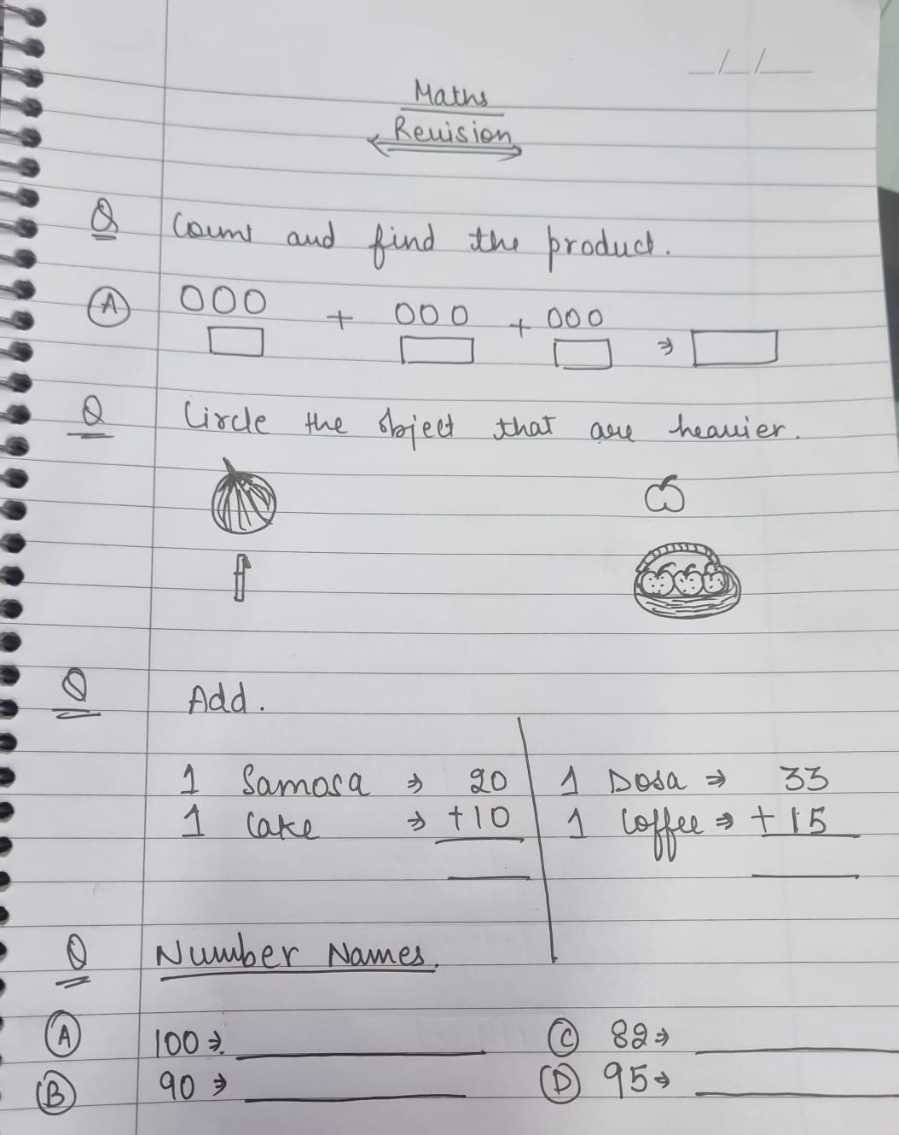 _/_/_
Maths
Revision
Q Count and find the product.
A OOO + OOO + OOO ⇒
Q Circle the object that are heavier.
Q Add.
1 Samosa ⇒ 20 1 Dosa ⇒ 33
1 Cake ⇒ +10 1 Coffee ⇒ +15
Q Number Names.
A 100 ⇒ C 82 ⇒
B 90 ⇒ D 95 ⇒